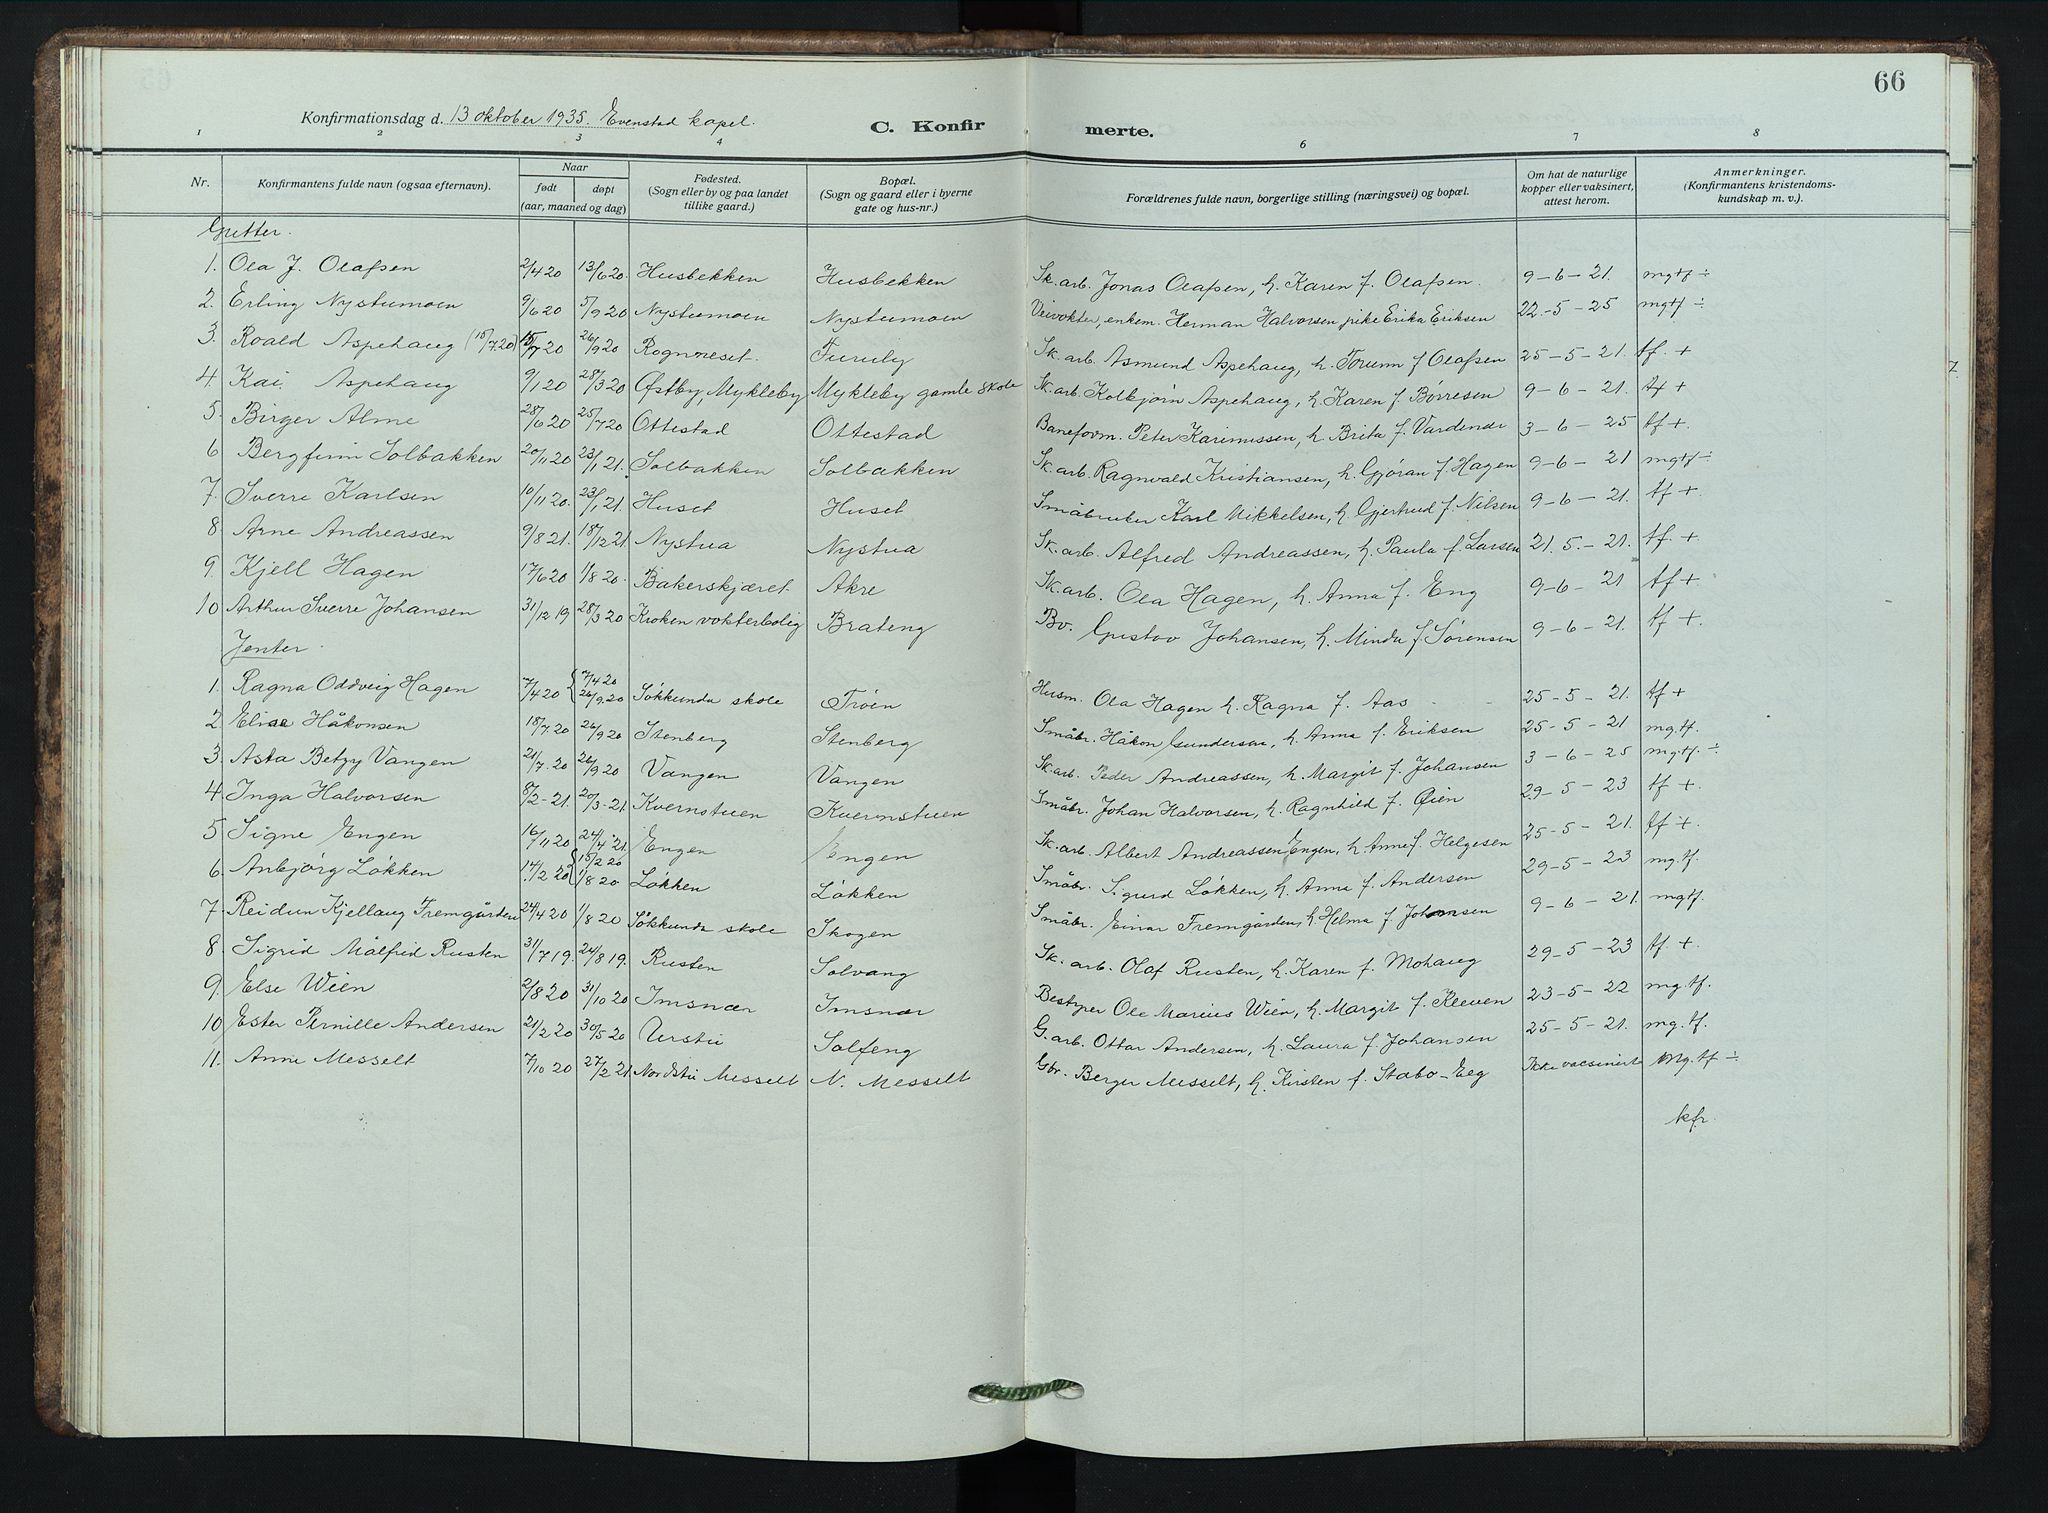 66
Konfirmationsdag d. 13 oktober 1935. Evenstad kapel.
C. Konfirmerte.
1 2 3 4 6 7 8
Nr. Konfirmantens fulde navn (ogsaa efternavn). Naar født døpt (aar, maaned og dag) Fødested. (Sogn eller by og paa landet tillike gaard.) Bopæl. (Sogn og gaard eller i byerne gate og hus-nr.) Forældrenes fulde navn, borgerlige stilling (næringsvei) og bopæl. Om hat de naturlige kopper eller vaksinert, attest herom. Anmerkninger. (Konfirmantens kristendoms-kundskap m. v.).
Gutter.
1. Ola J. Olafsen 2/4 20 13/6 20. Husbekken Husbekken Sk. arb. Jonas Olafsen, h. Karen f. Olafsen. 9-6-21. mgtf ÷
2. Erling Nystumoen 9/6 20 5/9 20 Nystumoen Nystumoen Veivokter, enkem. Herman Halvorsen, pike Erika Eriksen 22.-5-25 mgtf ÷
3. Roald Aspehaug (15/7 20) 15/7 20 26/9 20 Rognreset. Furuly Sk. arb. Asmund Aspehaug, h. Torunn f Olafsen 25-5-21. tf. +
4. Kai Aspehaug 9/1 20 28/3 20 Østby, Mykleby Mykleby gamle skole Sk. arb. Kolbjørn Aspehaug, h. Karen f Børresen 9-6-21. tf +
5. Birger Alme 28/6 20 25/7 20 Ottestad Ottestad Baneform. Peter Karinussen, h. Brita f. Vardenær 3-6-25 tf +.
6 Bergfinn Solbakken 20/11 20 23/1 21. Solbakken Solbakken Sk. arb. Ragnvald Kristiansen, h. Gjøran f. Hagen 9-6-21 mgtf ÷
7. Sverre Karlsen 10/11 20. 23/1 21. Huset Huset Småbruker Karl Mikkelsen, h. Gjertrud f. Nilsen 9-6-21. tf +.
8 Arne Andreassen 9/8 21. 18/12 21 Nystua Nystua Sk. arb. Alfred Andreassen, h. Paula f. Larsen 21.5.-21. tf. +
9. Kjell Hagen 17/6 20 1/8 20. Bakerskjæret Akre Sk. arb. Ola Hagen, h. Anna f. Eng 9-6-21 tf +
10 Arthur Sverre Johansen 31/12 19 28/3 20 Kroken vokterbolig Brateng Bv. Gustav Johansen, h. Minda f. Sørensen 9-6-21. tf +.
Jenter.
1. Ragna Oddveig Hagen 7/4 20 { 7/4 20 26/9 20 Søkkunda skole Trøen Husm. Ola Hagen h. Ragna f. Aas 25-5-21. tf +
2 Elise Håkonsen 18/7. 20 26/9 20 Stenberg Stenberg Småbr. Håkon Gundersen, h. Anna f. Eriksen 25-5-21 mg.tf.
3. Asta Betzy Vangen 21/7. 20 26/9 20 Vangen Vangen Sk. arb. Peder Andreassen, h. Margit f. Johansen 3-6-25 mgtf. ÷
4. Inga Halvorsen 8/2-21. 20/3-21. Kvernstuen Kvernstuen Småbr. Johan Halvorsen, h. Ragnhild f. Øien 29-5-23 tf +
5 Signe Engen 16/11 20 24/4 21. Engen Engen Sk. arb. Albert Andreassen Engen, h. Anne f. Helgesen 25-5-21. tf +.
6. Anbjørg Løkken 14/2 20 { 15/2 20 1/8 20 Løkken Løkken Småbr. Sigurd Løkken, h. Anna f. Andersen 29-5-23 mg.tf.
7. Reidun Kjellaug Fremgården 24/4 20 1/8 20 Søkkunda skole Skogen Småbr. Einar Fremgården, h Helma f. Johansen 9-6-21. mgtf.
8. Sigrid Målfrid Rusten 31/7 19. 24/8 19. Rusten Solvang Sk. arb. Olaf Rusten, h. Karen f. Mohaug 29-5-23 tf. +.
9. Else Wien 2/8 20 31/10 20 Imsnær Imsnær Bestyrer Ole Marius Wien, h. Margit f. Kleven 23-5-22 mg.tf.
10 Ester Pernille Andersen 21/2 20 30/5 20 Urstu Solfeng G. arb. Ottar Andersen, h. Laura f. Johansen 25-5-21. mg.tf.
11. Anne Messelt 7/10 20 27/2 21 Nordstu Messelt N. Messelt Gbr. Berger Messelt, h. Kirsten f. Stabo-Eeg Ikke vacsinert Mg.tf ÷
kfr.